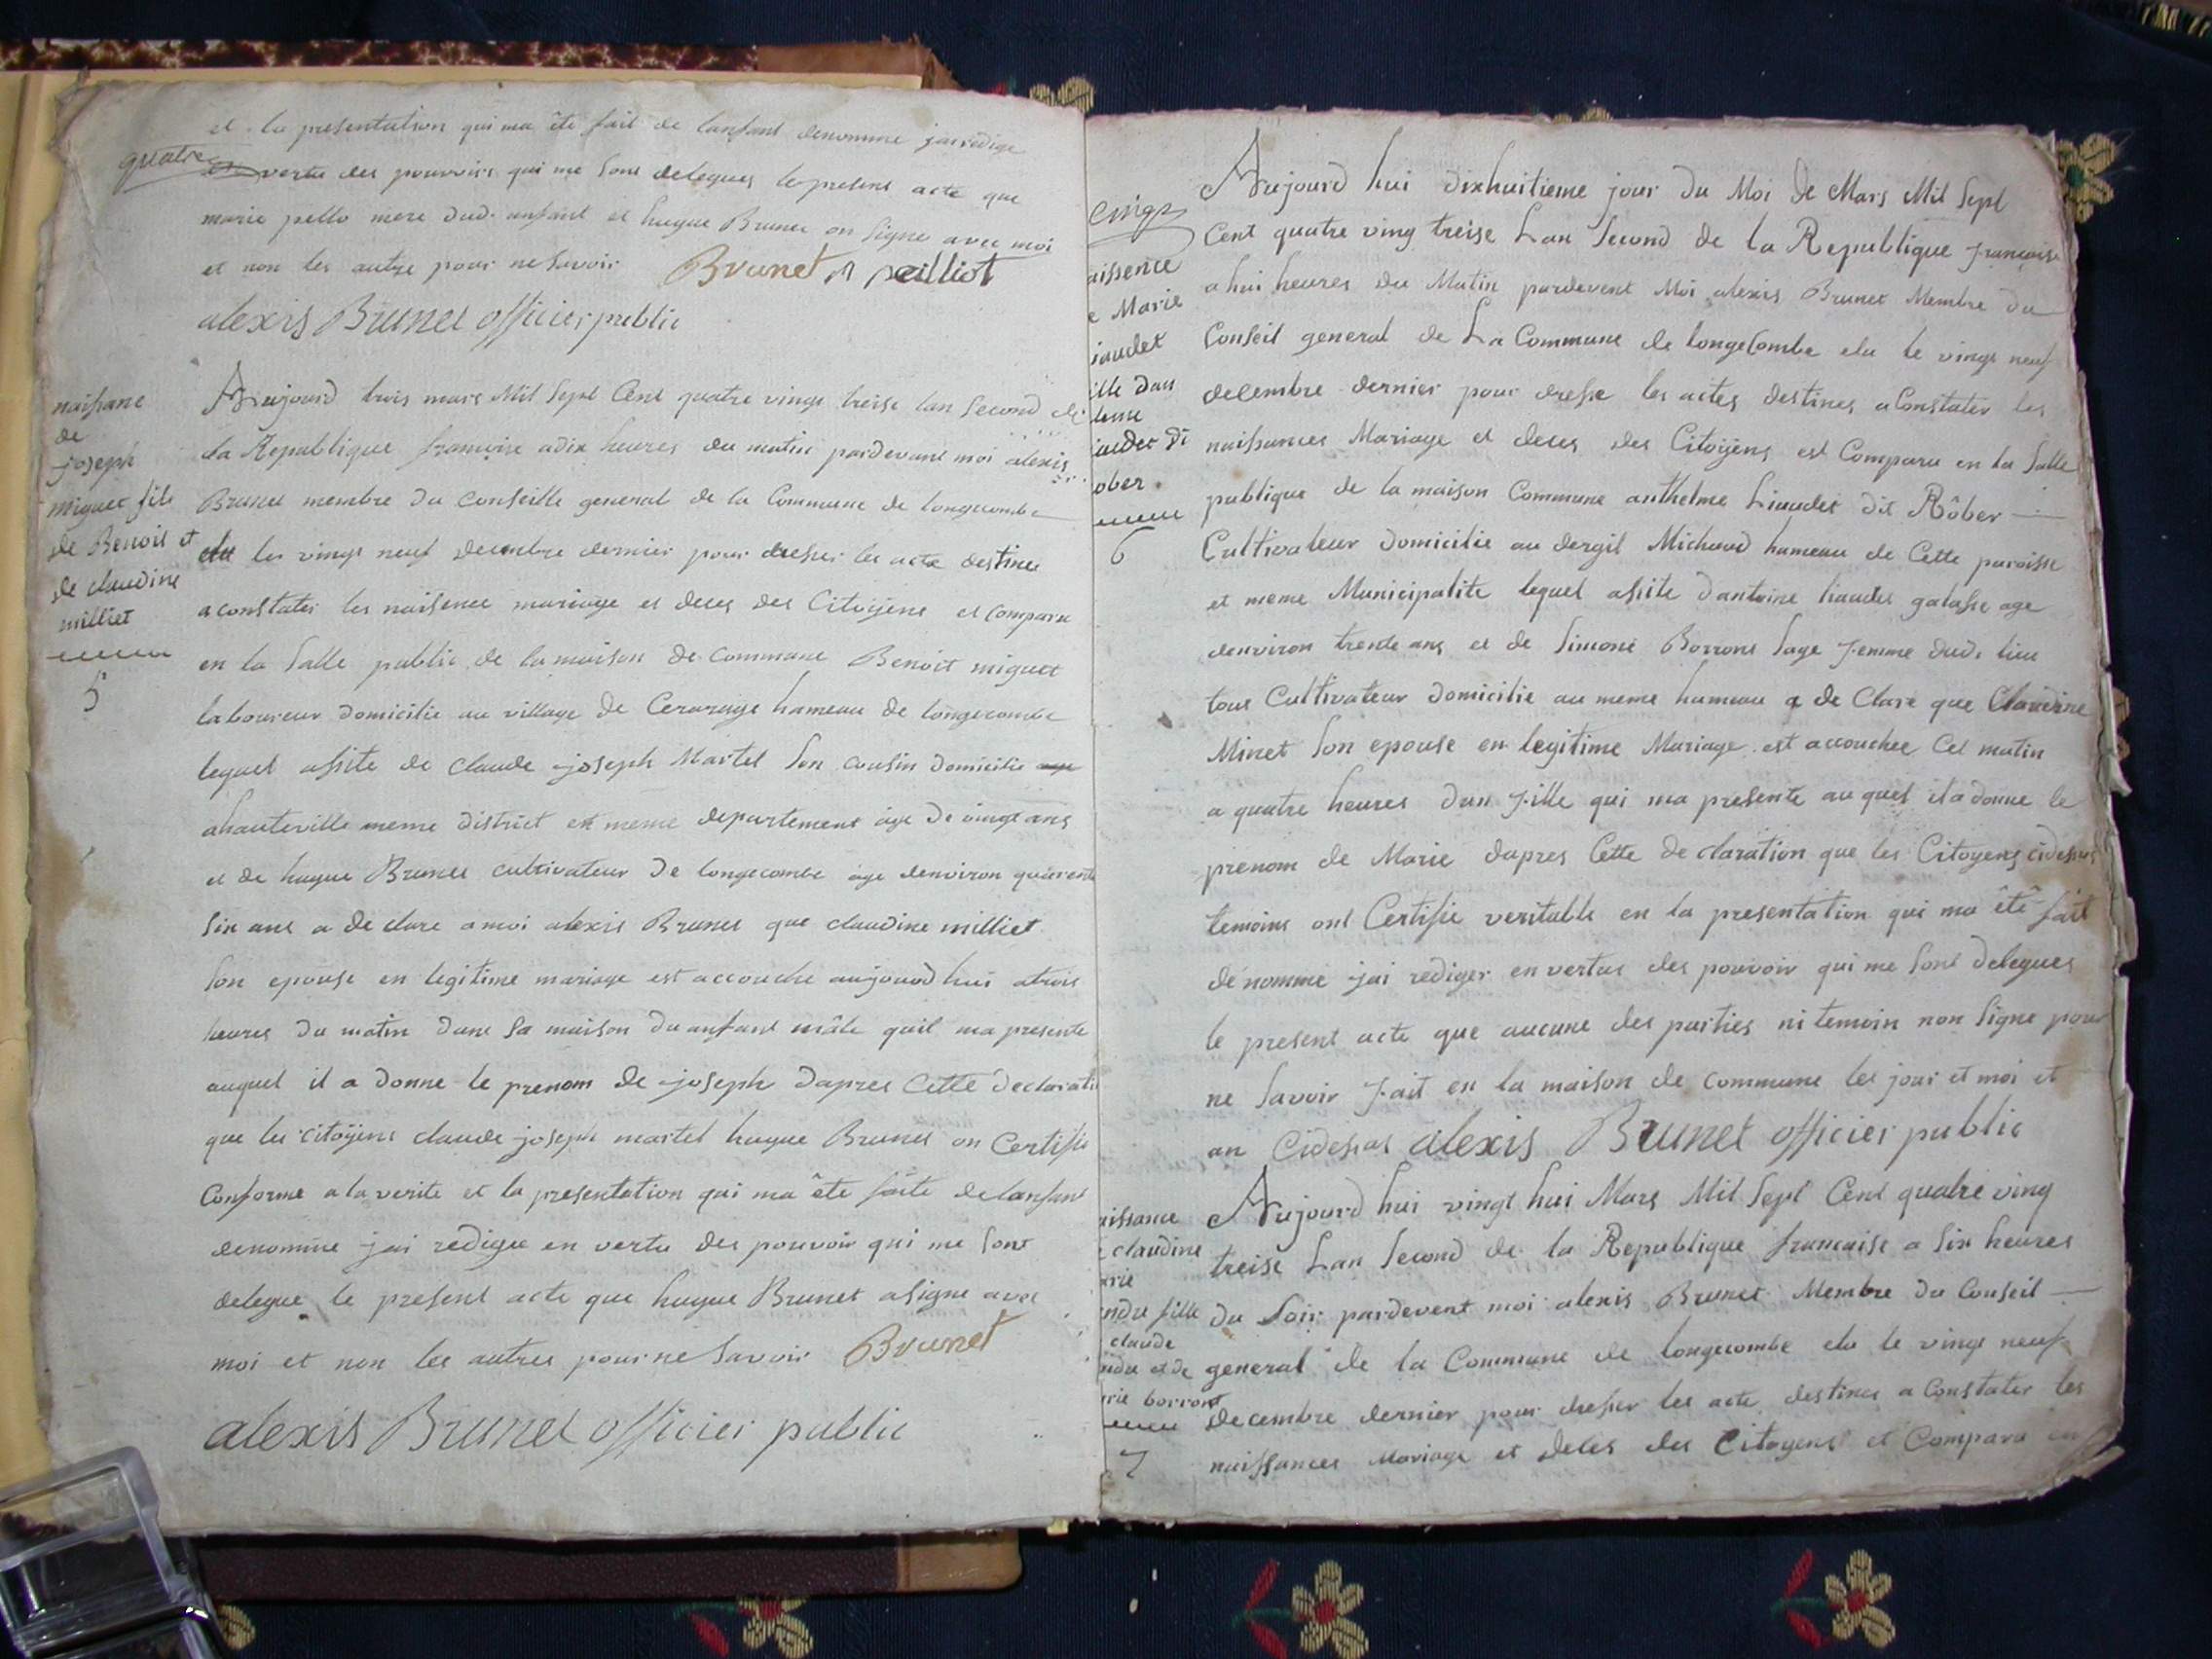 quatre
et la presentation qui ma ête fait de lanfant denomme jai redige
vertu des pouvoirs qui me sont delegues le present acte que
marie pello mere dud. anfant et hugue Brunet on signe avec moi
et non les autre pour ne savoir Brunet peilliot
alexis Brunet officier public
naissance
de
joseph
miguet fils
de Benoit et
de claudine
milliet
5
Aujourd trois mars Mil Sept Cent quatre vingt treise lan second de
la Republique françoise a dix heures du matin pardevant moi alexis
Brunet membre du conseille general de la Commune de longecombe
elu les vingt neuf decembre dernier pour dresser les acte destines
a constater les naisence mariage et deces des Citoÿens et comparu
en la salle public de la maison de commune Benoit miguet
laboureur domicilie au village de hameau de longecombe
lequel assite de claude joseph Martel son cousin domicilie
a hauteville meme district et meme departement age de vingt ans
et de hugue Brunet cultivateur de longecombe age denviron quarente
six ans a de clare a moi alexis Brunet que claudine milliet
son epouse en legitime mariage est accouche aujourdhui a trois
heures du matin dans sa maison du anfant mâle quil ma presente
auquel il a donne le prenom de joseph dapres cette declarati
que les citoÿens claude joseph martel hugue Brunet on Certifie
Conforme a la verite et la presentation qui ma ête faite de lanfant
denomme jai redigee en vertu des pouvoir qui me sont
delegue le present acte que hugue Brunet a signe avec
moi et non les autres pour ne savoir Brunet
alexis Brunet officier public
cinqz
aissence
e Marie
iaudet
ille dan
telme
iaudet di
ober
6
Aujourd hui dixhuitieme jour du Moi de Mars Mil Sept
Cent quatre ving treise Lan Second de la Republique françoise
a hui heures du Matin pardevent Moi alexis Brunet Membre du
Conseil general de La Commune de longecombe elu le vingt neuf
decembre dernier pour dresse les actes destines a Constater les
naissances Mariage et deces des Citoÿens est Comparu en la Salle
publique de la maison Commune anthelme Liaudet dit Rôber
Cultivateur domicilie au dergit Michaud hameau de Cette paroisse
et meme Municipalite lequel assite dantoine liaudet galasse age
denviron trente ans et de Simone Borrone Sage femme dud. lieu
tous Cultivateur domicilie au meme hameau a de Clare que Claudine
Minet son epouse en legitime Mariage est accouchee Cet matin
a quatre heures dun fille qui ma presente au quel il a donne le
prenom de Marie dapres Cette de claration que les Citoyens cidessus
temoins ont Certifie veritable en la presentation qui ma êtê fait
denomme jai rediger en vertus des pouvoir qui me sont delegues
le present acte que aucune des parties ni temoin non signe pour
ne savoir fait en la maison de commune les jour et moi et
an cidessus alexis Brunet officier public
aissance
claudine
arie
ndre fille
claude
ndre et de
rie borront
7
Aujourd hui vingt hui Mars Mil Sept Cent quatre ving
treise Lan Second de la Republique francaise a six heures
du soir pardevent moi alexis Brunet Membre du Conseil
general de la Commune de longecombe elu le vingt neuf
decembre dernier pour dresser les acte destines a Constater les
naissances Mariage et deces des Citoyens et Comparu en